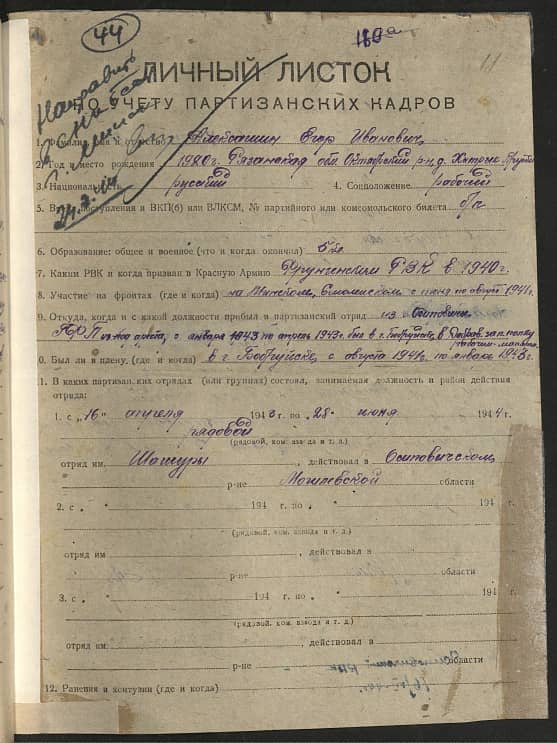 44
180а
11
Направить
24.7.44
ЛИЧНЫЙ ЛИСТОК
ПО УЧЕТУ ПАРТИЗАНСКИХ КАДРОВ
1. Фамилия, имя и отчество Алексашин Егор Иванович
2. Год и место рождения 1920 г. Рязанская обл.
3. Национальность русский 4. Соцположение рабочий
5. Время вступления в ВКП(б) или ВЛКСМ, № партийного или комсомольского билета б/п
6. Образование: общее и военное (что и когда окончил) 5 кл.
7. Каким РВК и когда призван в Красную Армию Фрунзенским РВК в 1940 г.
8. Участие на фронтах (где и когда) на Минском, Смоленском с июня по август 1941 г.
9. Откуда, когда и с какой должности прибыл в партизанский отряд из Осиповичи
с января 1943 по апрель 1943. был в г. Бобруйске, в
0. Был ли в плену, (где и когда) в г. Бобруйске, с августа 1941 г. по январь 1943 г.
1. В каких партизанских отрядах (или группах) состоял, занимаемая должность и район действия
отряда:
1. с „16" апреля 1943 г. по „28" июня 1944 г.
рядовой
(рядовой, ком. взвода и т. д.)
отряд им. Шашуры, действовал в Осиповичском
р-не Могилевской области
2. с „ " 194 г. по „ " 194 г.
(рядовой, ком. взвода и т. д.)
отряд им , действовал в
р-не области
3. с „ " 194 г. по „ " 194 г.
(рядовой, ком. взвода и т. д.)
отряд им. , действовал в
р-не области
12. Ранения и контузии (где и когда)